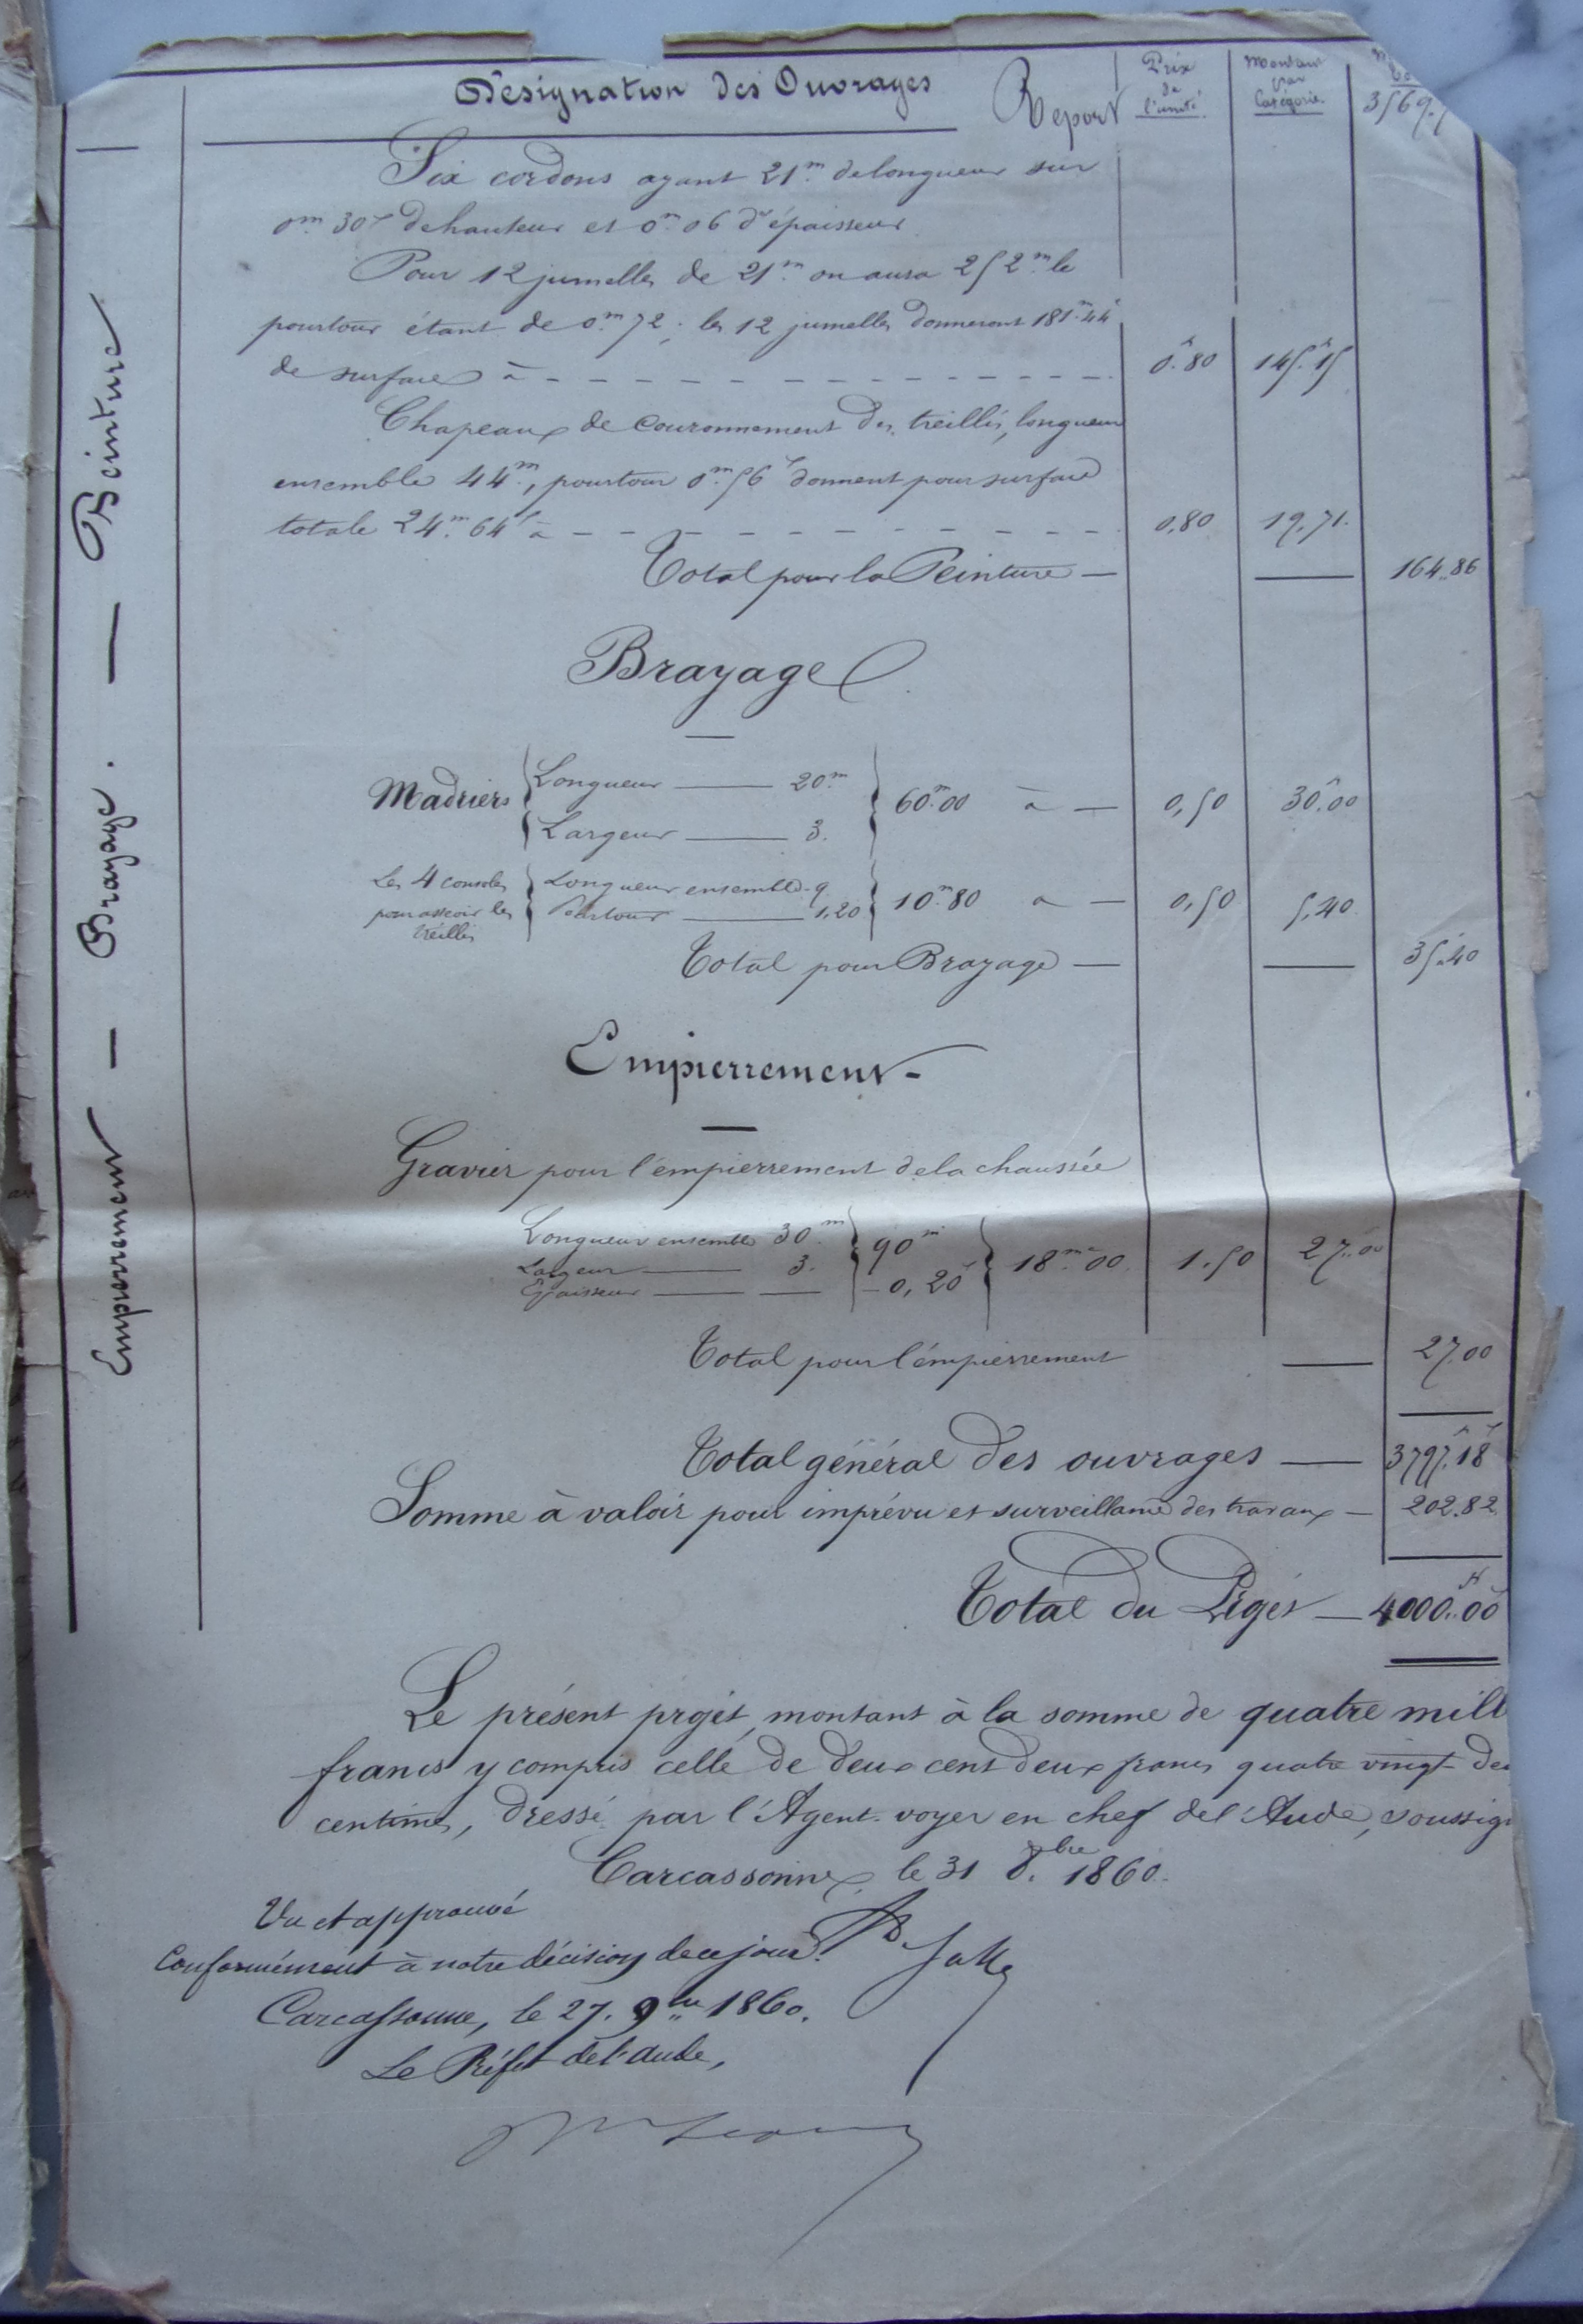 Désignation des Ouvrages
Report
Prix de l'unité
Montant par Catégorie.
3569.
Six cordons ayant 21m. de longueur sur
0m. 30c de hauteur et 0m. 06 d'épaisseur
Pour 12 jumelles de 21m. on aura 252m. le
pourtour étant de 0m. 72, les 12 jumelles donneront 181m. 44c
de surface à - - - 0f. 80 145f. 15
Chapeaux de couronnement des treillis, longueur
ensemble 44m., pourtour 0m. 56c donnent pour surface
totale 24m. 64c à - - - 0,80 19,71.
Total pour la Peinture — 164,,86
Brayage
Madriers { Longueur — 20m. } 60m.00 à — 0,50 30f.00
Largeur — 3.
Les 4 consoles { Longueur ensemble. 9 } 10m.80 à — 0,50 5,40
pour asseoir les Pourtour — 1,20
treillis
Total pour Brayage — 35,,40
Empierrement -
Gravier pour l'empierrement de la chaussée
Longueur ensemble 30m. } 90m } 18m.00. 1.50 27,,00
Largeur — 3.
Epaisseur — — 0,20c
Total pour l'empierrement — 27,00
Total général des ouvrages — 3797f.18c
Somme à valoir pour imprévu et surveillance des travaux — 202.82
Total du Projet — 4000f.00c
Le présent projet, montant à la somme de quatre mill
francs y compris celle de deux cent deux francs quatre vingt de
centimes, dressé par l'Agent-voyer en chef de l'Aude, soussig
Carcassonne, le 31 8.bre 1860.
Vu et approuvé
Conformément à notre décision de ce jour.
Carcassonne, le 27. 9bre 1860.
Le Préfet de l'Aude,
Empierrement — Brayage. — Peinture